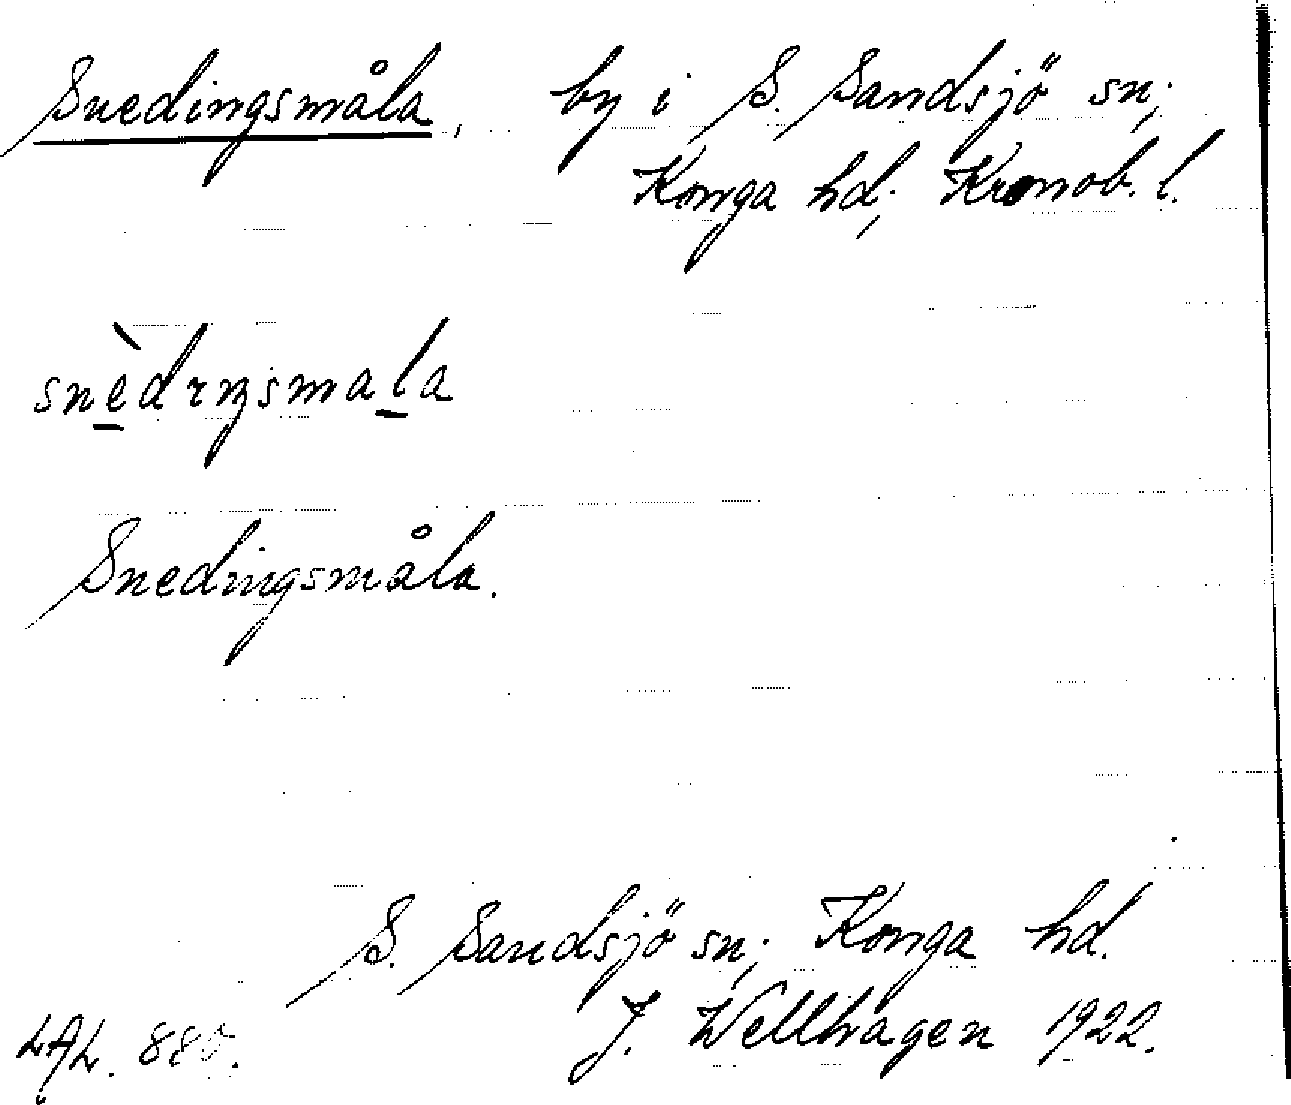 Snedingsmåla, by i S. Sandsjö sn;
Konga hd; Kronob. l.
snèdıŋsmala
Snedingsmåla.
S. Sandsjö sn; Konga hd.
J. Wellhagen 1922.